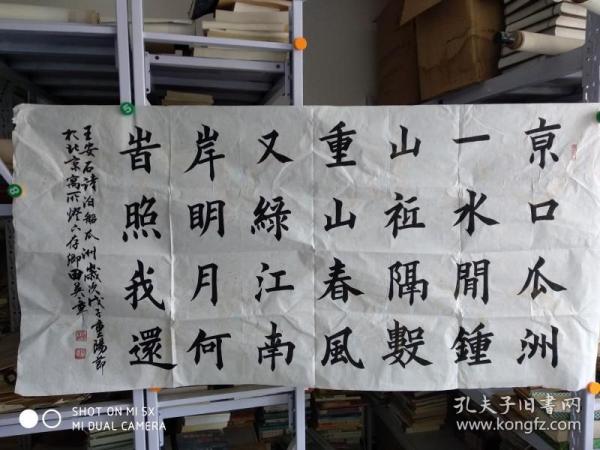 京口瓜洲
一水間鍾
山祗隔數
重山春風
又綠江南
岸明月何
旹照我還
王安石詩泊船瓜洲歲次戊子重陽節
於北京寓所燈下 田英章
SHOT ON MI 5X
MI DUAL CAMERA
孔夫子旧書网
www.kongfz.com